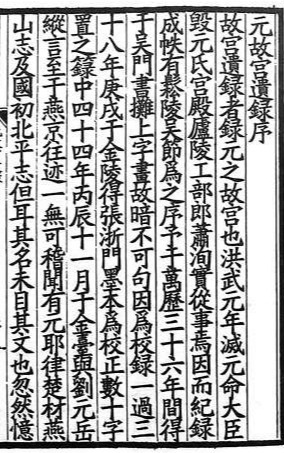 元故宫遺録序
故宫遺録者録元之故宫也洪武元年滅元命大臣
毁元氏宫殿廬陵工部郎蕭洵實從事焉因而紀録
成帙有鬆陵吴節爲之序予于萬歷三十六年間得
于吴門書攤上字畫故暗不可句因爲校録一過三
十八年庚戌于金陵得張浙門墨本爲校正數十字
置之籙中四十四年丙辰十一月于金臺與劉元岳
縱言至于燕京往迹一無可稽聞有元耶律楚材燕
山志及國初北平志但耳其名未目其文也忽然憶